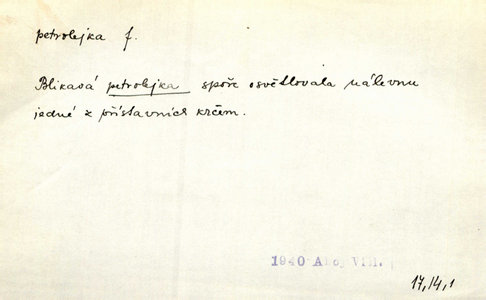 petrolejka f.
Blikavá petrolejka spoře osvětlovala nálevnu
jedné z přístavních krčem.
1940
17,14,1